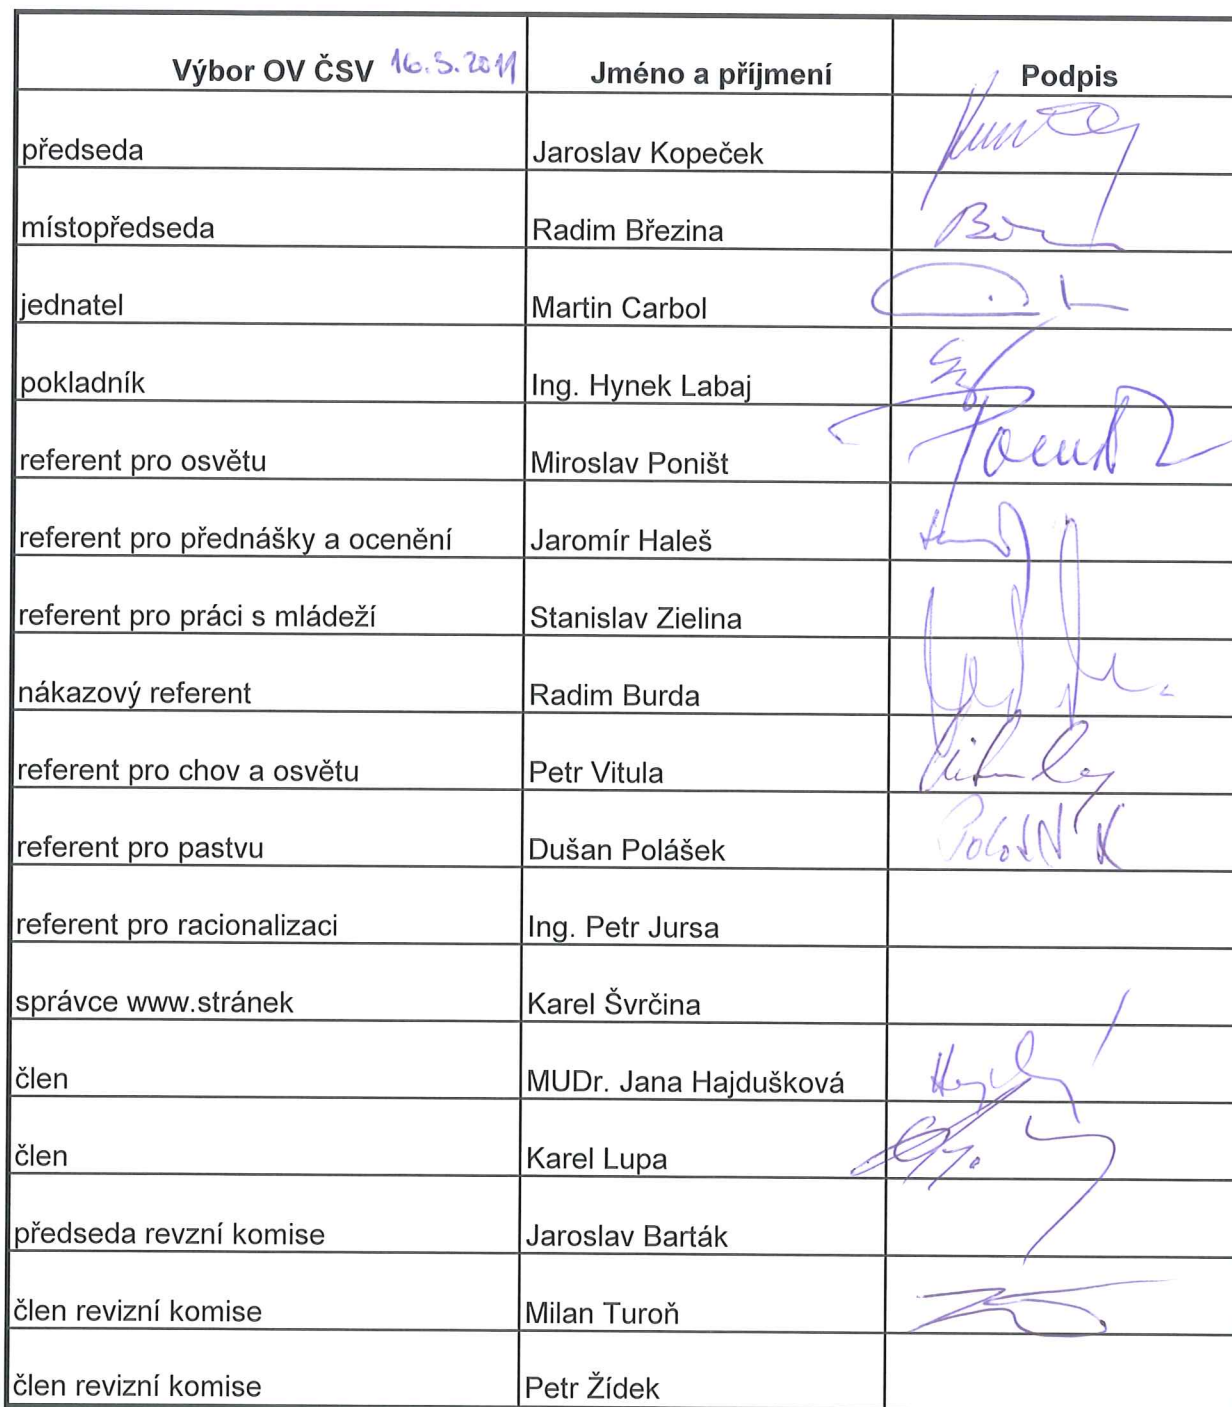 Výbor OV ČSV 16.5.2011 Jméno a příjmení Podpis
předseda Jaroslav Kopeček
místopředseda Radim Březina
jednatel Martin Carbol
pokladník Ing. Hynek Labaj
referent pro osvětu Miroslav Poništ
referent pro přednášky a ocenění Jaromír Haleš
referent pro práci s mládeží Stanislav Zielina
nákazový referent Radim Burda
referent pro chov a osvětu Petr Vitula
referent pro pastvu Dušan Polášek
referent pro racionalizaci Ing. Petr Jursa
správce www.stránek Karel Švrčina
člen MUDr. Jana Hajdušková
člen Karel Lupa
předseda revzní komise Jaroslav Barták
člen revizní komise Milan Turoň
člen revizní komise Petr Žídek